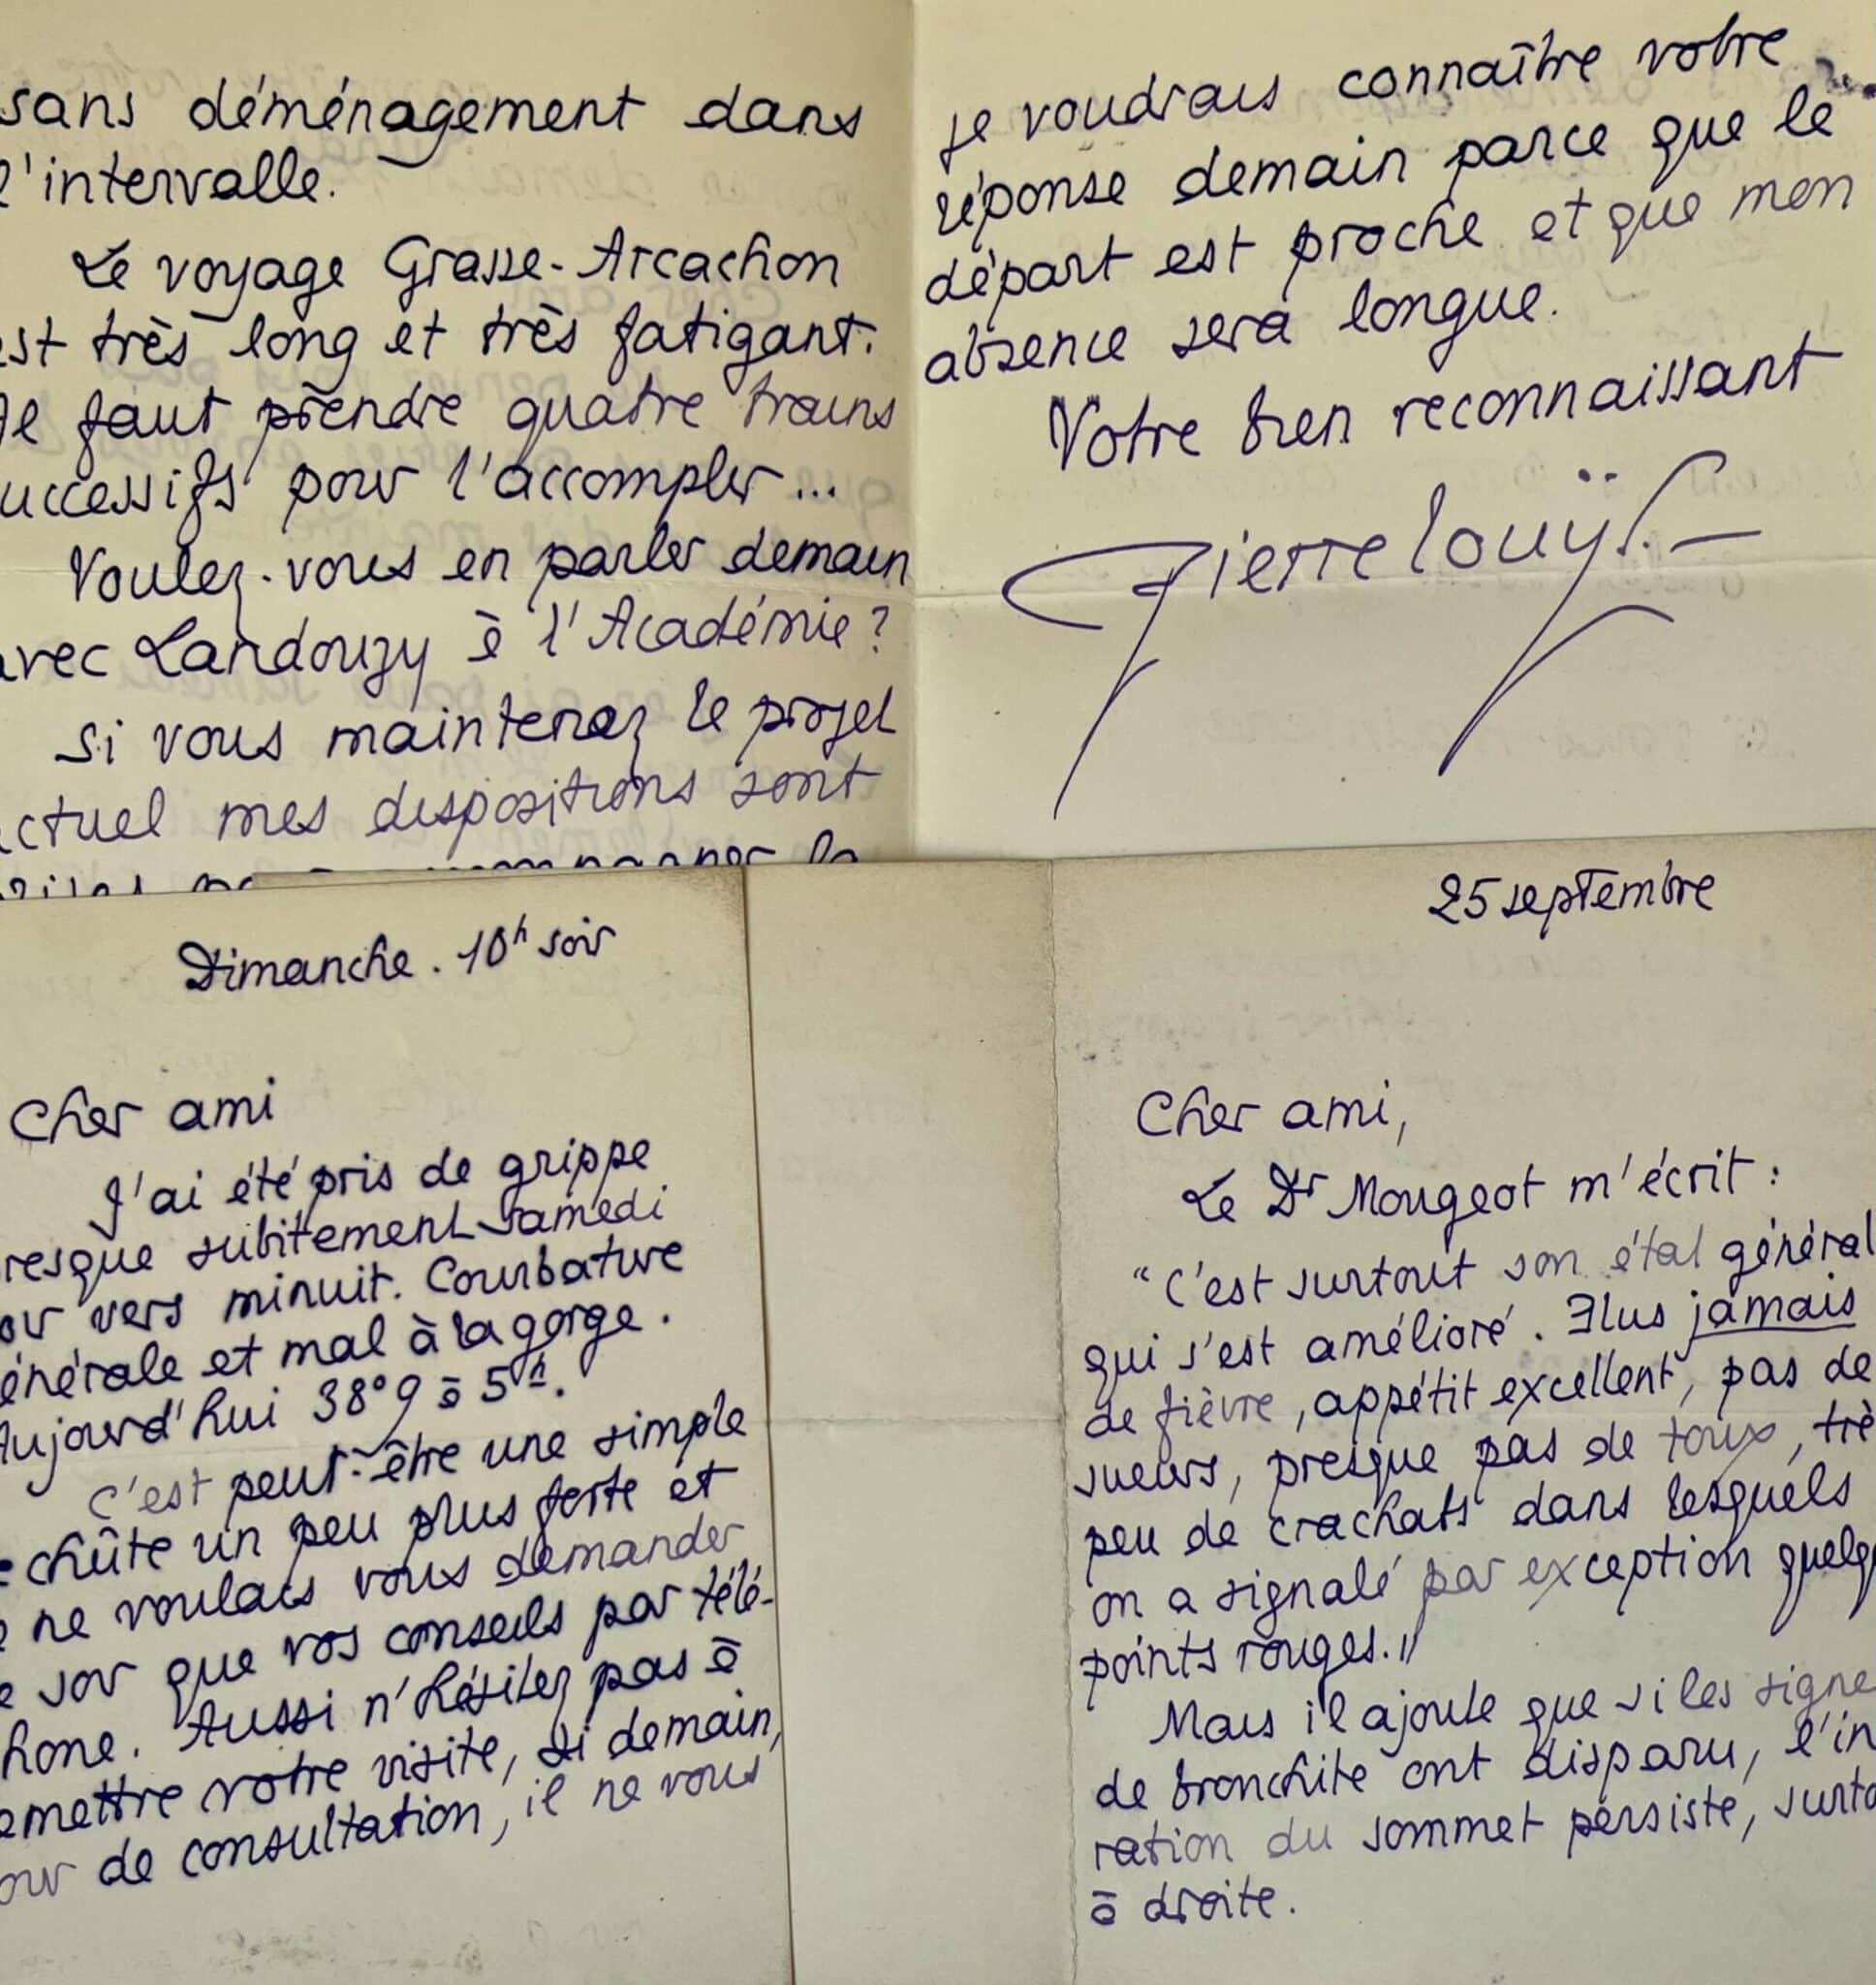 sans déménagement dans
l'intervalle.
Le voyage Grasse-Arcachon
est très long et très fatigant.
Il faut prendre quatre trains
successifs pour l'accomplir...
Voulez-vous en parler demain
avec Landouzy à l'Académie?
Si vous maintenez le projet
actuel mes dispositions sont
je voudrais connaître votre
réponse demain parce que le
départ est proche et que mon
absence sera longue.
Votre bien reconnaissant
Pierre Louÿs.
Dimanche. 10h soir
Cher ami
J'ai été pris de grippe
resque subitement samedi
oir vers minuit. Courbature
énérale et mal à la gorge.
Aujourd'hui 38°9 à 5h.
C'est peut-être une simple
echûte un peu plus forte et
e ne voulais vous demander
e soir que vos conseils par télé-
hone. Aussi n'hésitez pas à
emettre votre visite, si demain,
our de consultation, il ne vous
25 septembre
Cher ami,
Le Dr Mougeot m'écrit :
"C'est surtout son état général
qui s'est amélioré. Plus jamais
de fièvre, appétit excellent, pas de
sueurs, presque pas de toux, trè
peu de crachats dans lesquels
on a signalé par exception quelq
points rouges."
Mais il ajoute que si les signe
de bronchite ont disparu, l'in
ration du sommet persiste, surto
à droite.